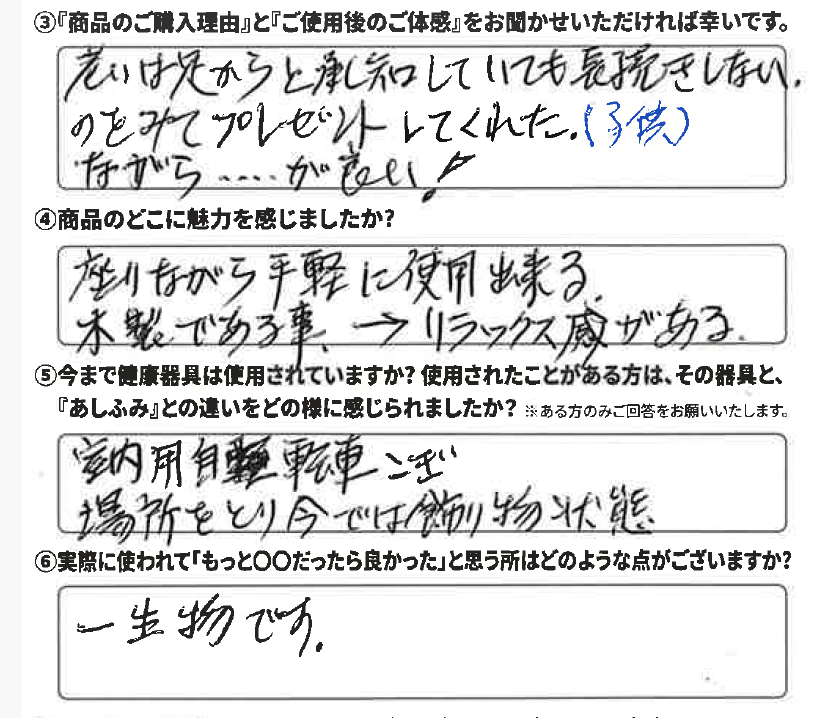 ③『商品のご購入理由』と『ご使用後のご体感』をお聞かせいただければ幸いです。
老いは足からと承知していても長続きしない。
のをみてプレゼントしてくれた。(子供)
ながら.....が良い!
④商品のどこに魅力を感じましたか?
座りながら手軽に使用出来る。
木製である事。→リラックス感がある。
⑤今まで健康器具は使用されていますか? 使用されたことがある方は、その器具と、
『あしふみ』との違いをどの様に感じられましたか? ※ある方のみご回答をお願いいたします。
室内用自転車こぎ
場所をとり今では飾り物状態
⑥実際に使われて「もっと〇〇だったら良かった」と思う所はどのような点がございますか?
一生物です。